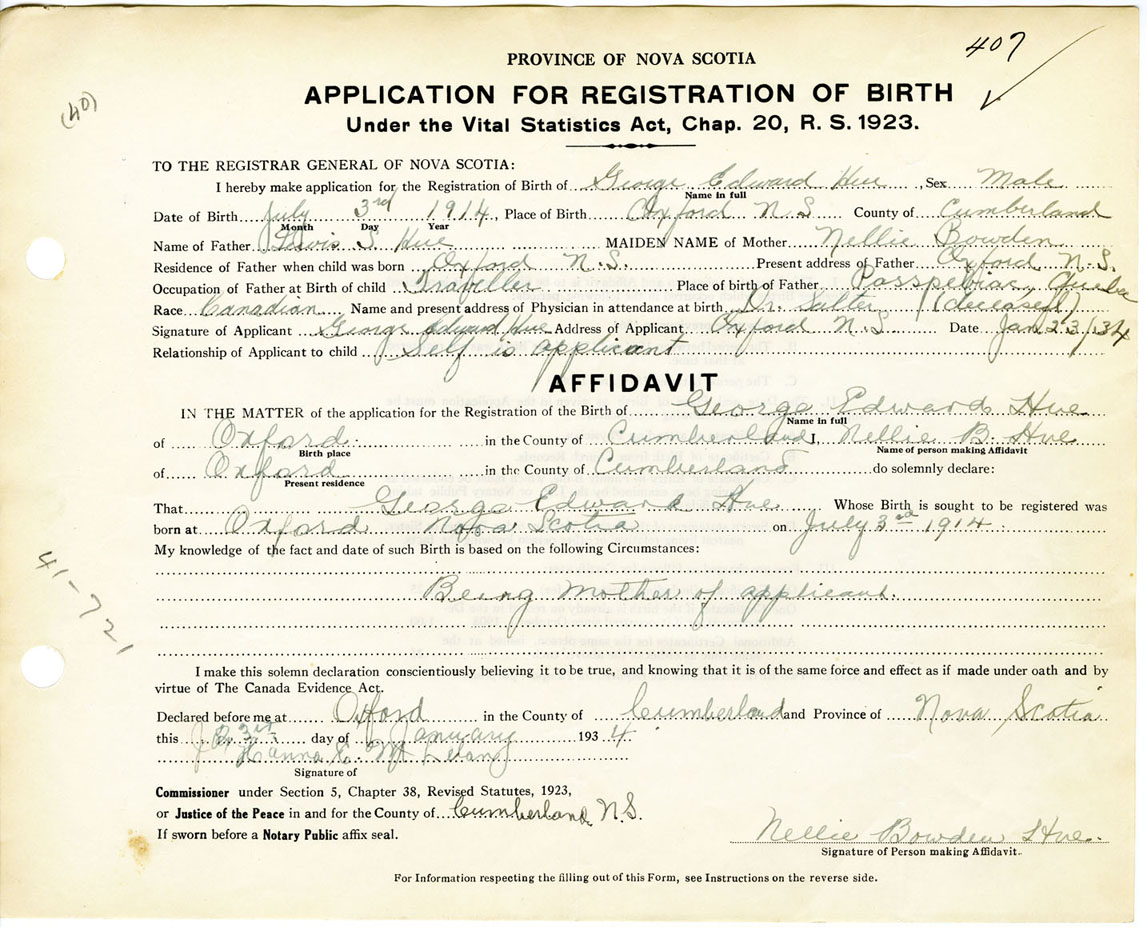 407
PROVINCE OF NOVA SCOTIA
(40)
APPLICATION FOR REGISTRATION OF BIRTH
Under the Vital Statistics Act, Chap. 20, R. S. 1923.
TO THE REGISTRAR GENERAL OF NOVA SCOTIA:
I hereby make application for the Registration of Birth of George Edward Hue, Sex Male
Name in full
Date of Birth July 3rd 1914, Place of Birth Oxford N.S County of Cumberland
Month Day Year
Name of Father Lewis S Hue MAIDEN NAME of Mother Nellie Bowden
Residence of Father when child was born Oxford N.S. Present address of Father Oxford N.S.
Occupation of Father at Birth of child Traveller Place of birth of Father Passpebiac, Quebec
Race Canadian Name and present address of Physician in attendance at birth Dr. Salter (deceased)
Signature of Applicant George edward Hue Address of Applicant Oxford N.S Date Jan 23/34
Relationship of Applicant to child Self is applicant
AFFIDAVIT
IN THE MATTER of the application for the Registration of the Birth of George Edward Hue
Name in full
of Oxford in the County of Cumberland I, Nellie B. Hue
Birth place Name of person making Affidavit
of Oxford in the County of Cumberland do solemnly declare:
Present residence
That George Edward Hue Whose Birth is sought to be registered was
born at Oxford Nova Scotia on July 3rd 1914
My knowledge of the fact and date of such Birth is based on the following Circumstances:
Being Mother of applicant.
41-721
I make this solemn declaration conscientiously believing it to be true, and knowing that it is of the same force and effect as if made under oath and by
virtue of The Canada Evidence Act.
Declared before me at Oxford in the County of Cumberland and Province of Nova Scotia
this day of January 1934
Hanna E.
Signature of
Commissioner under Section 5, Chapter 38, Revised Statutes, 1923,
or Justice of the Peace in and for the County of Cumberland N.S.
If sworn before a Notary Public affix seal.
Nellie Bowden Hue
Signature of Person making Affidavit.
For Information respecting the filling out of this Form, see Instructions on the reverse side.